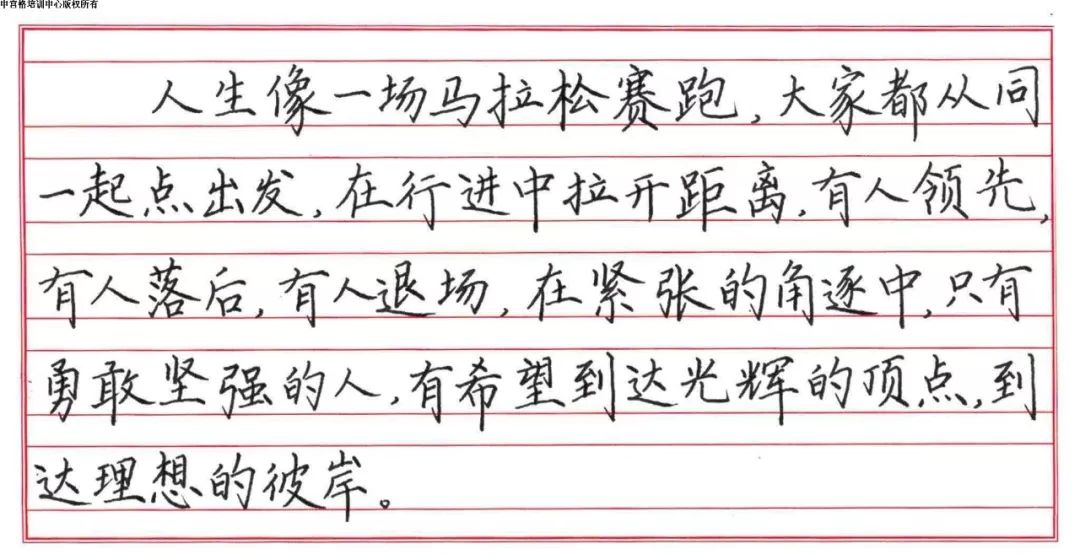 中宫格培训中心版权所有
人生像一场马拉松赛跑,大家都从同
一起点出发,在行进中拉开距离,有人领先,
有人落后,有人退场,在紧张的角逐中,只有
勇敢坚强的人,有希望到达光辉的顶点,到
达理想的彼岸。